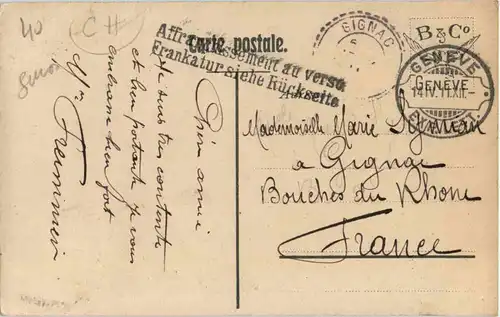 40
CH
Carte postale.
Affranchissement au verso.
Frankatur siehe Rückseite
GIGNAC
B & Co
GENÈVE
GENÈVE
14.IV. 11.XII.
Chère amie
Je suis très contente
et bien portante je vous
embrasse bien fort
Mme Fremmier
Mademoiselle Marie
a Gignac
Bouches du Rhone
France